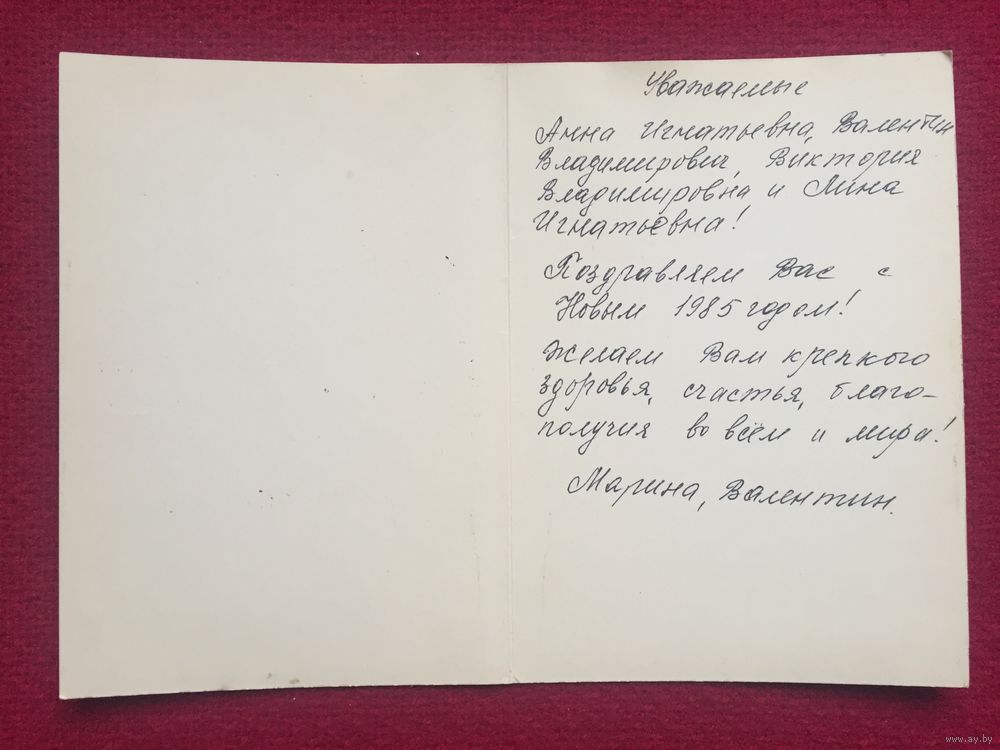 Уважаемые
Анна Игнатьевна, Валентин
Владимирович, Виктория
Владимировна и Лина
Игнатьевна!
Поздравляем Вас с
Новым 1985 годом!
Желаем Вам крепкого
здоровья, счастья, благо-
получия во всём и мира!
Марина, Валентин.
www.ay.by